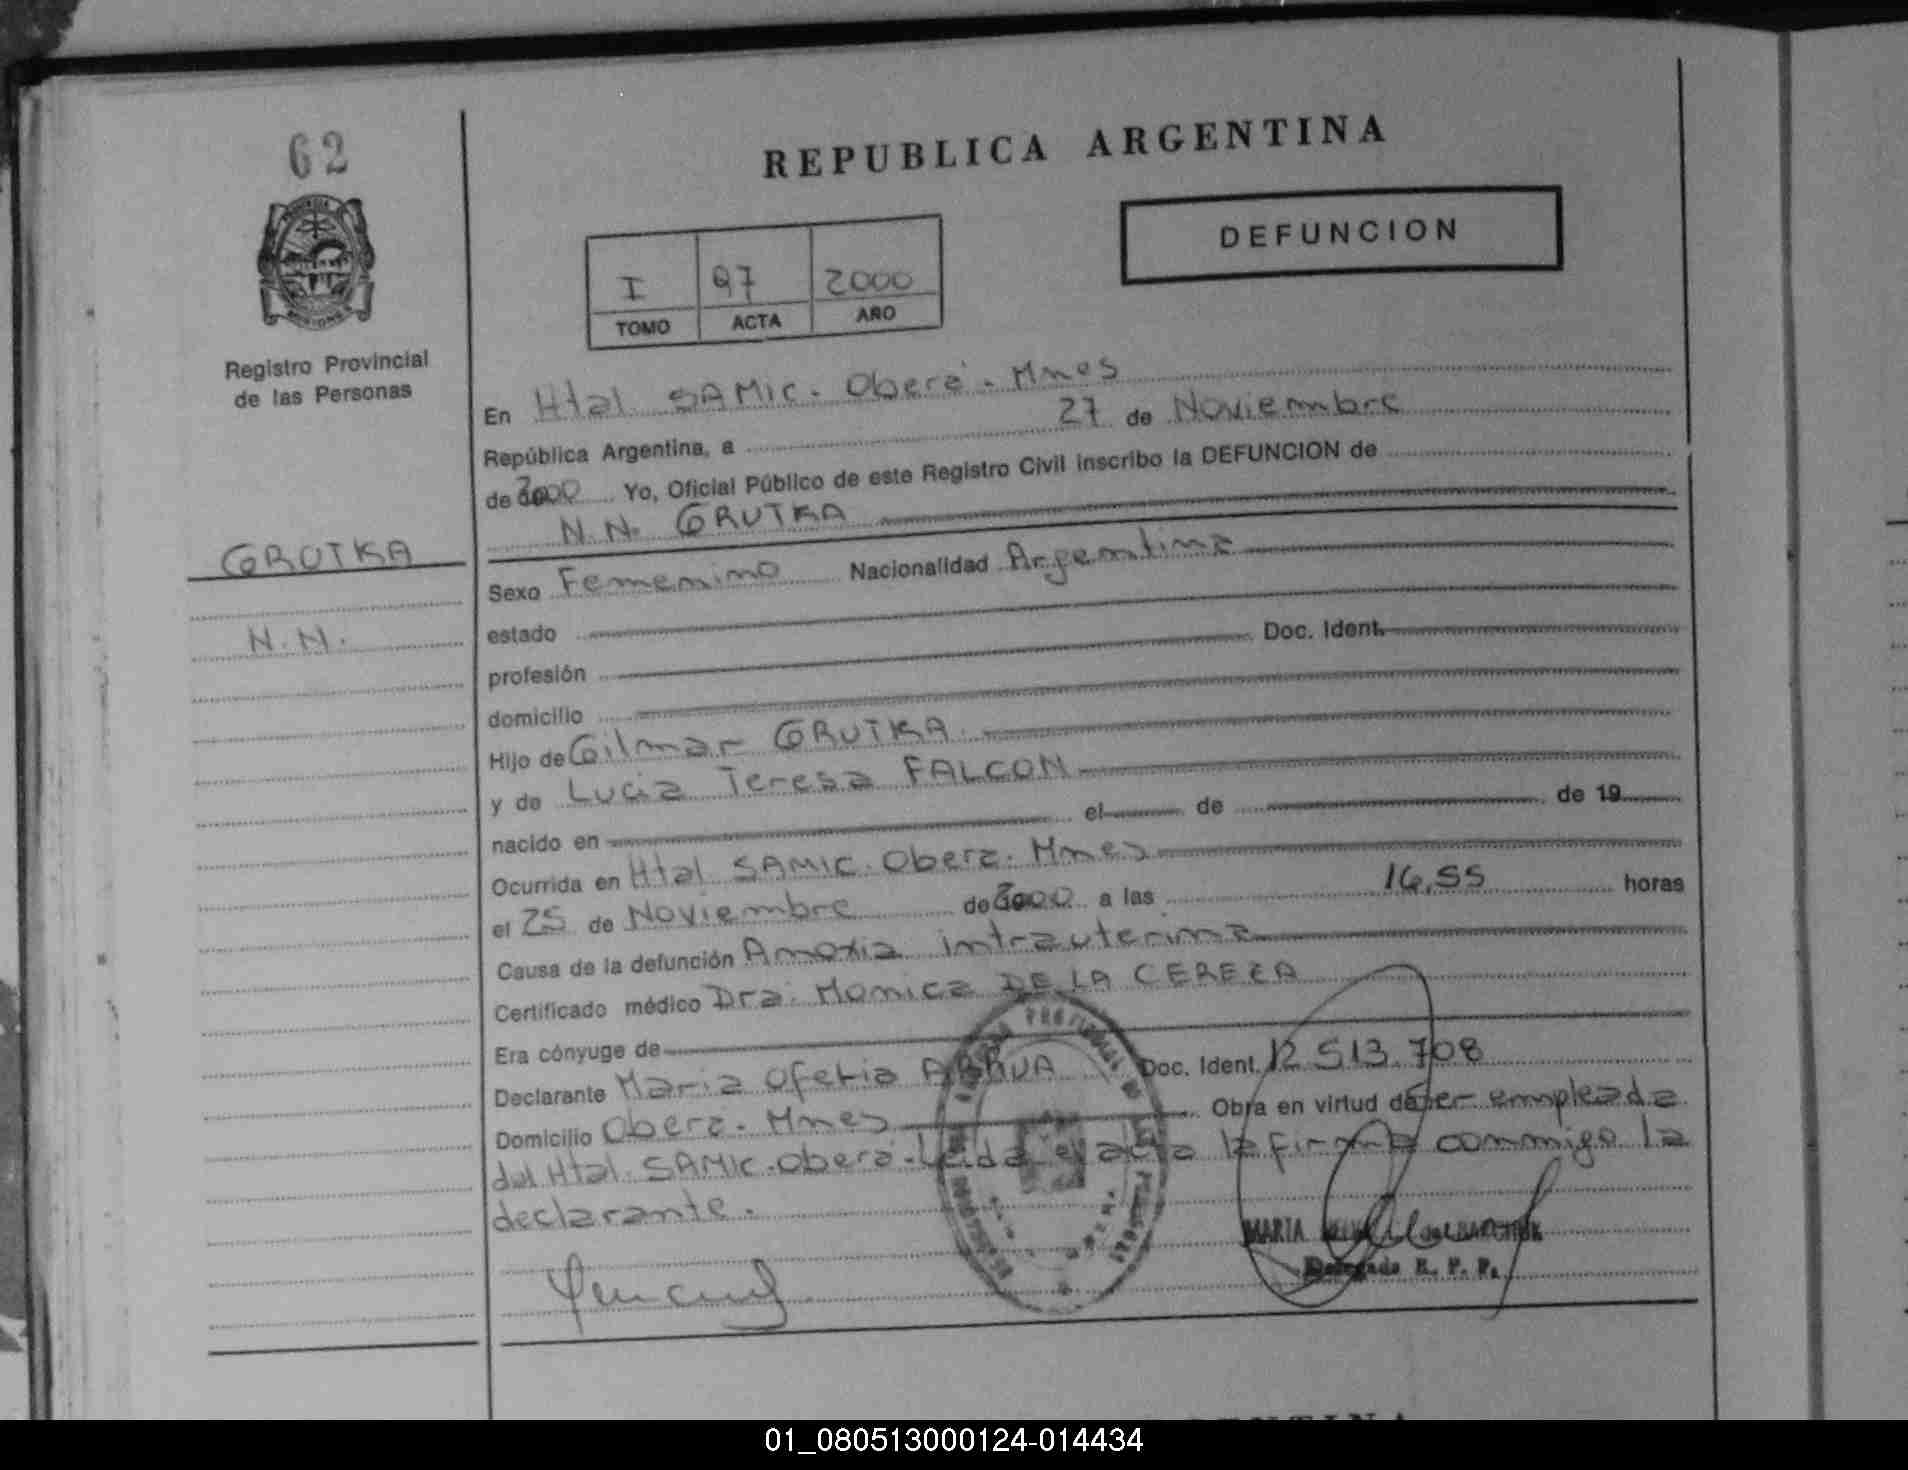 62
REPUBLICA ARGENTINA
DEFUNCION
I 97 2000
TOMO ACTA AÑO
Registro Provincial
de las Personas
En Htal SAMIC. Oberá. Mnes
República Argentina, a 27 de Noviembre
de 2000 Yo, Oficial Público de este Registro Civil inscribo la DEFUNCION de
N.N. GRUTKA
GRUTKA
N.N.
Sexo Femenino Nacionalidad Argentina
estado
profesión Doc. Ident.
domicilio
Hijo de Gilmar GRUTKA
y de Lucia Teresa FALCON
nacido en el de de 19
Ocurrida en Htal SAMIC. Obera. Mnes
el 25 de Noviembre de 2000 a las 16,55 horas
Causa de la defunción Anoxia intrauterina
Certificado médico Dra. Monica DE LA CEREZA
Era cónyuge de
Declarante Maria Ofelia Doc. Ident. 12.513.708
Domicilio Obera. Mnes Obra en virtud de ser empleada
del Htal. SAMIC. Oberá. Leida el acta la firma conmigo la
declarante.
MARIA
Delegada R. P. P.
01_080513000124-014434